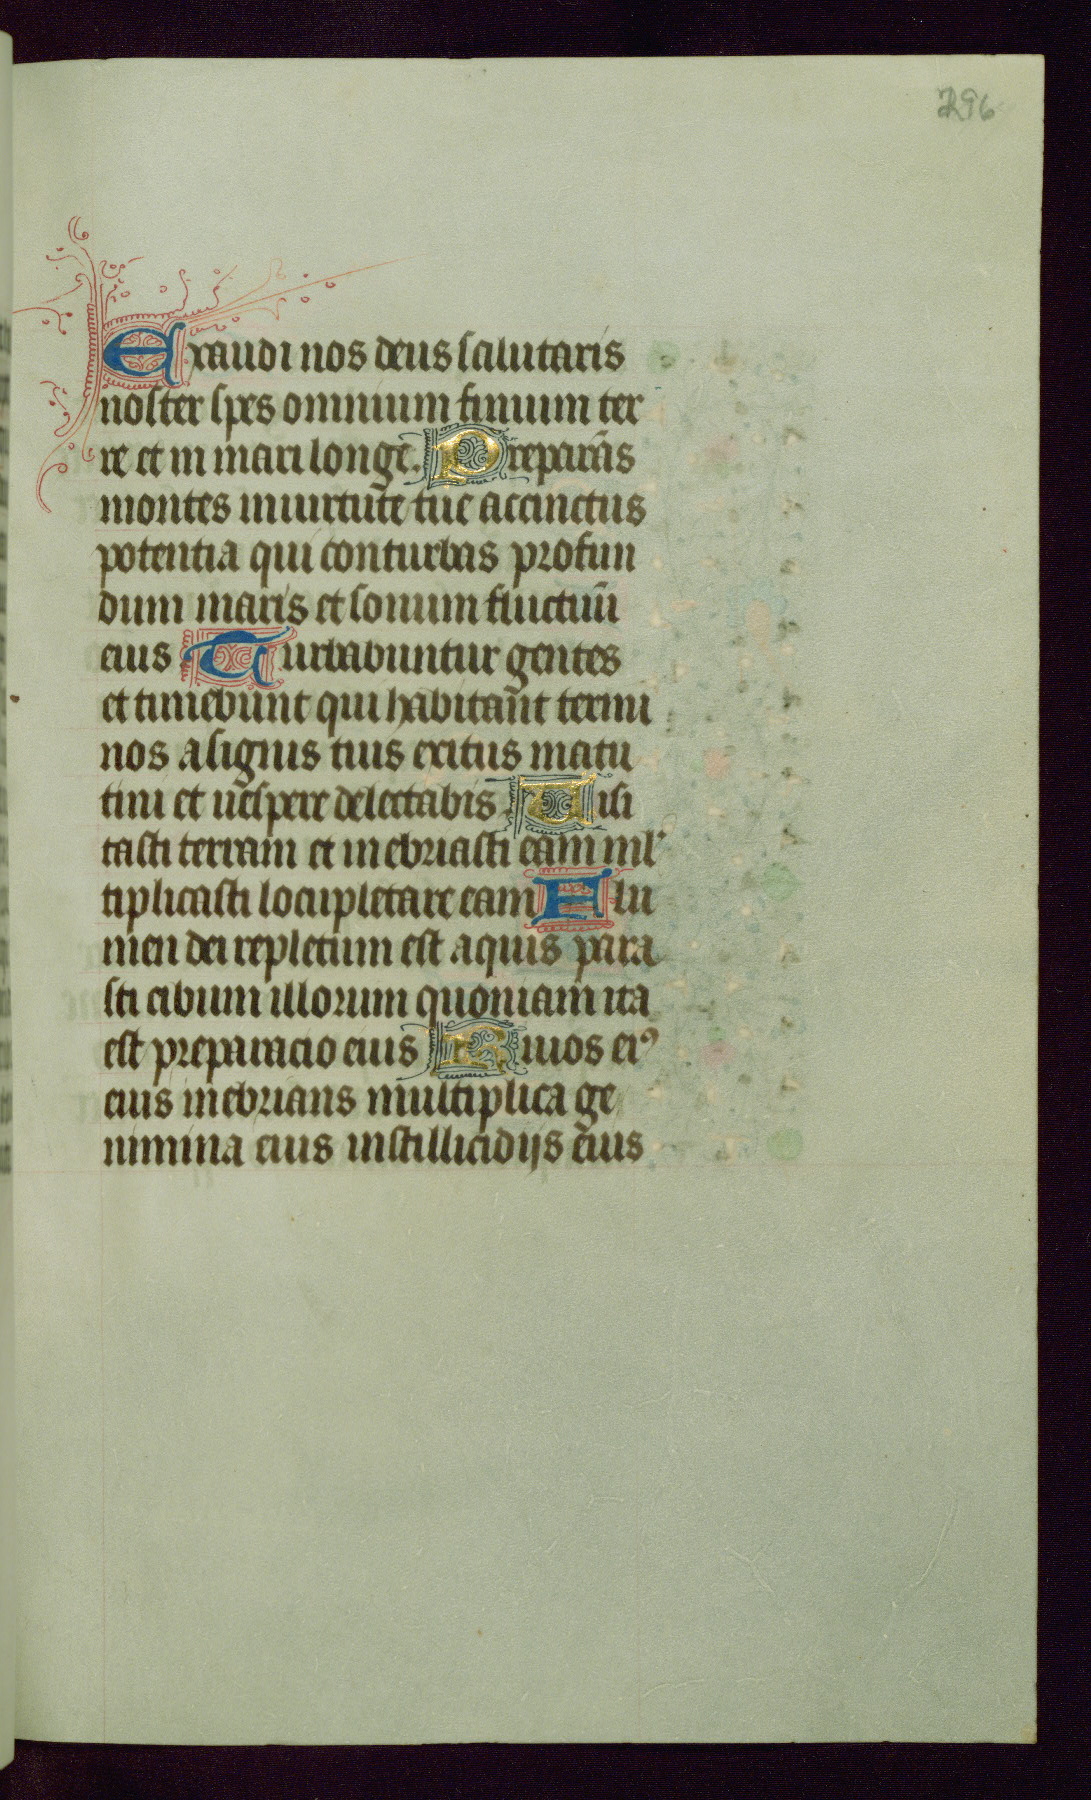 296
Exaudi nos deus salutaris
noster spes omnium finium ter
re et in mari longe. Preparās
montes in uirtute tue accinctus
potentia qui conturbas profun
dum maris et sonum fluctuū
eius Turbabuntur gentes
et timebunt qui habitant termi
nos a signis tuis exitus matu
tini et uespere delectabis Uisi
tasti terram et inebriasti eam mł
tiplicasti locupletare eam Flu
men dei repletum est aquis para
sti cibum illorum quoniam ita
est preparacio eius Riuos eiꝰ
eius inebrians multiplica ge
nimina eius instillicidijs eius